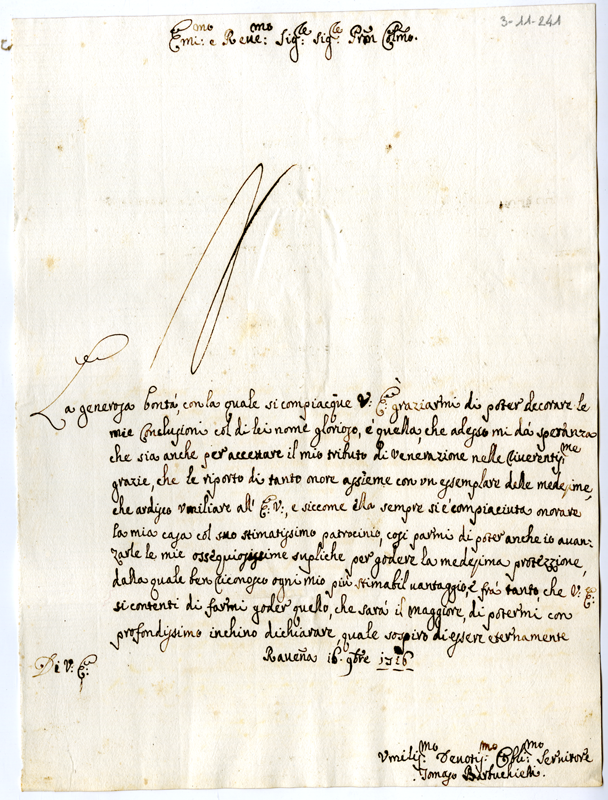 3-11-241
Emi:mo e Reve:mo Sig:le Sig:le Pron Colmo.
La generosa bontà, con la quale si compiacque V: Ea. graziarmi di poter decorare le
mie Conclusioni col di lei nome glorioso, è quella, che adesso mi dà speranza
che sia anche per accettare il mio tributo di venerazione nelle riverentisme
grazie, che le riporto di tanto onore assieme con vn essemplare delle medesime,
che ardisco vmiliare all' Ea: V:, e siccome ella sempre si è compiaciuta onorare
la mia casa col suo stimatissimo patrocinio, così parmi di poter anche io avan-
zarle le mie ossequiosissime supliche per godere la medesima protezzione,
dalla quale ben riconosco ogni mio più stimabil vantaggio, e frà tanto, che V: Ea.
si contenti di farmi goder quello, che sarà il maggiore, di potermi con
profondissimo inchino dichiarare, quale sospiro di essere eternamente
Di V: Ea.
Ravenna 16. 9bre 1716
Vmilis:mo Devotis:mo Obli:mo Servitore
Tomaso